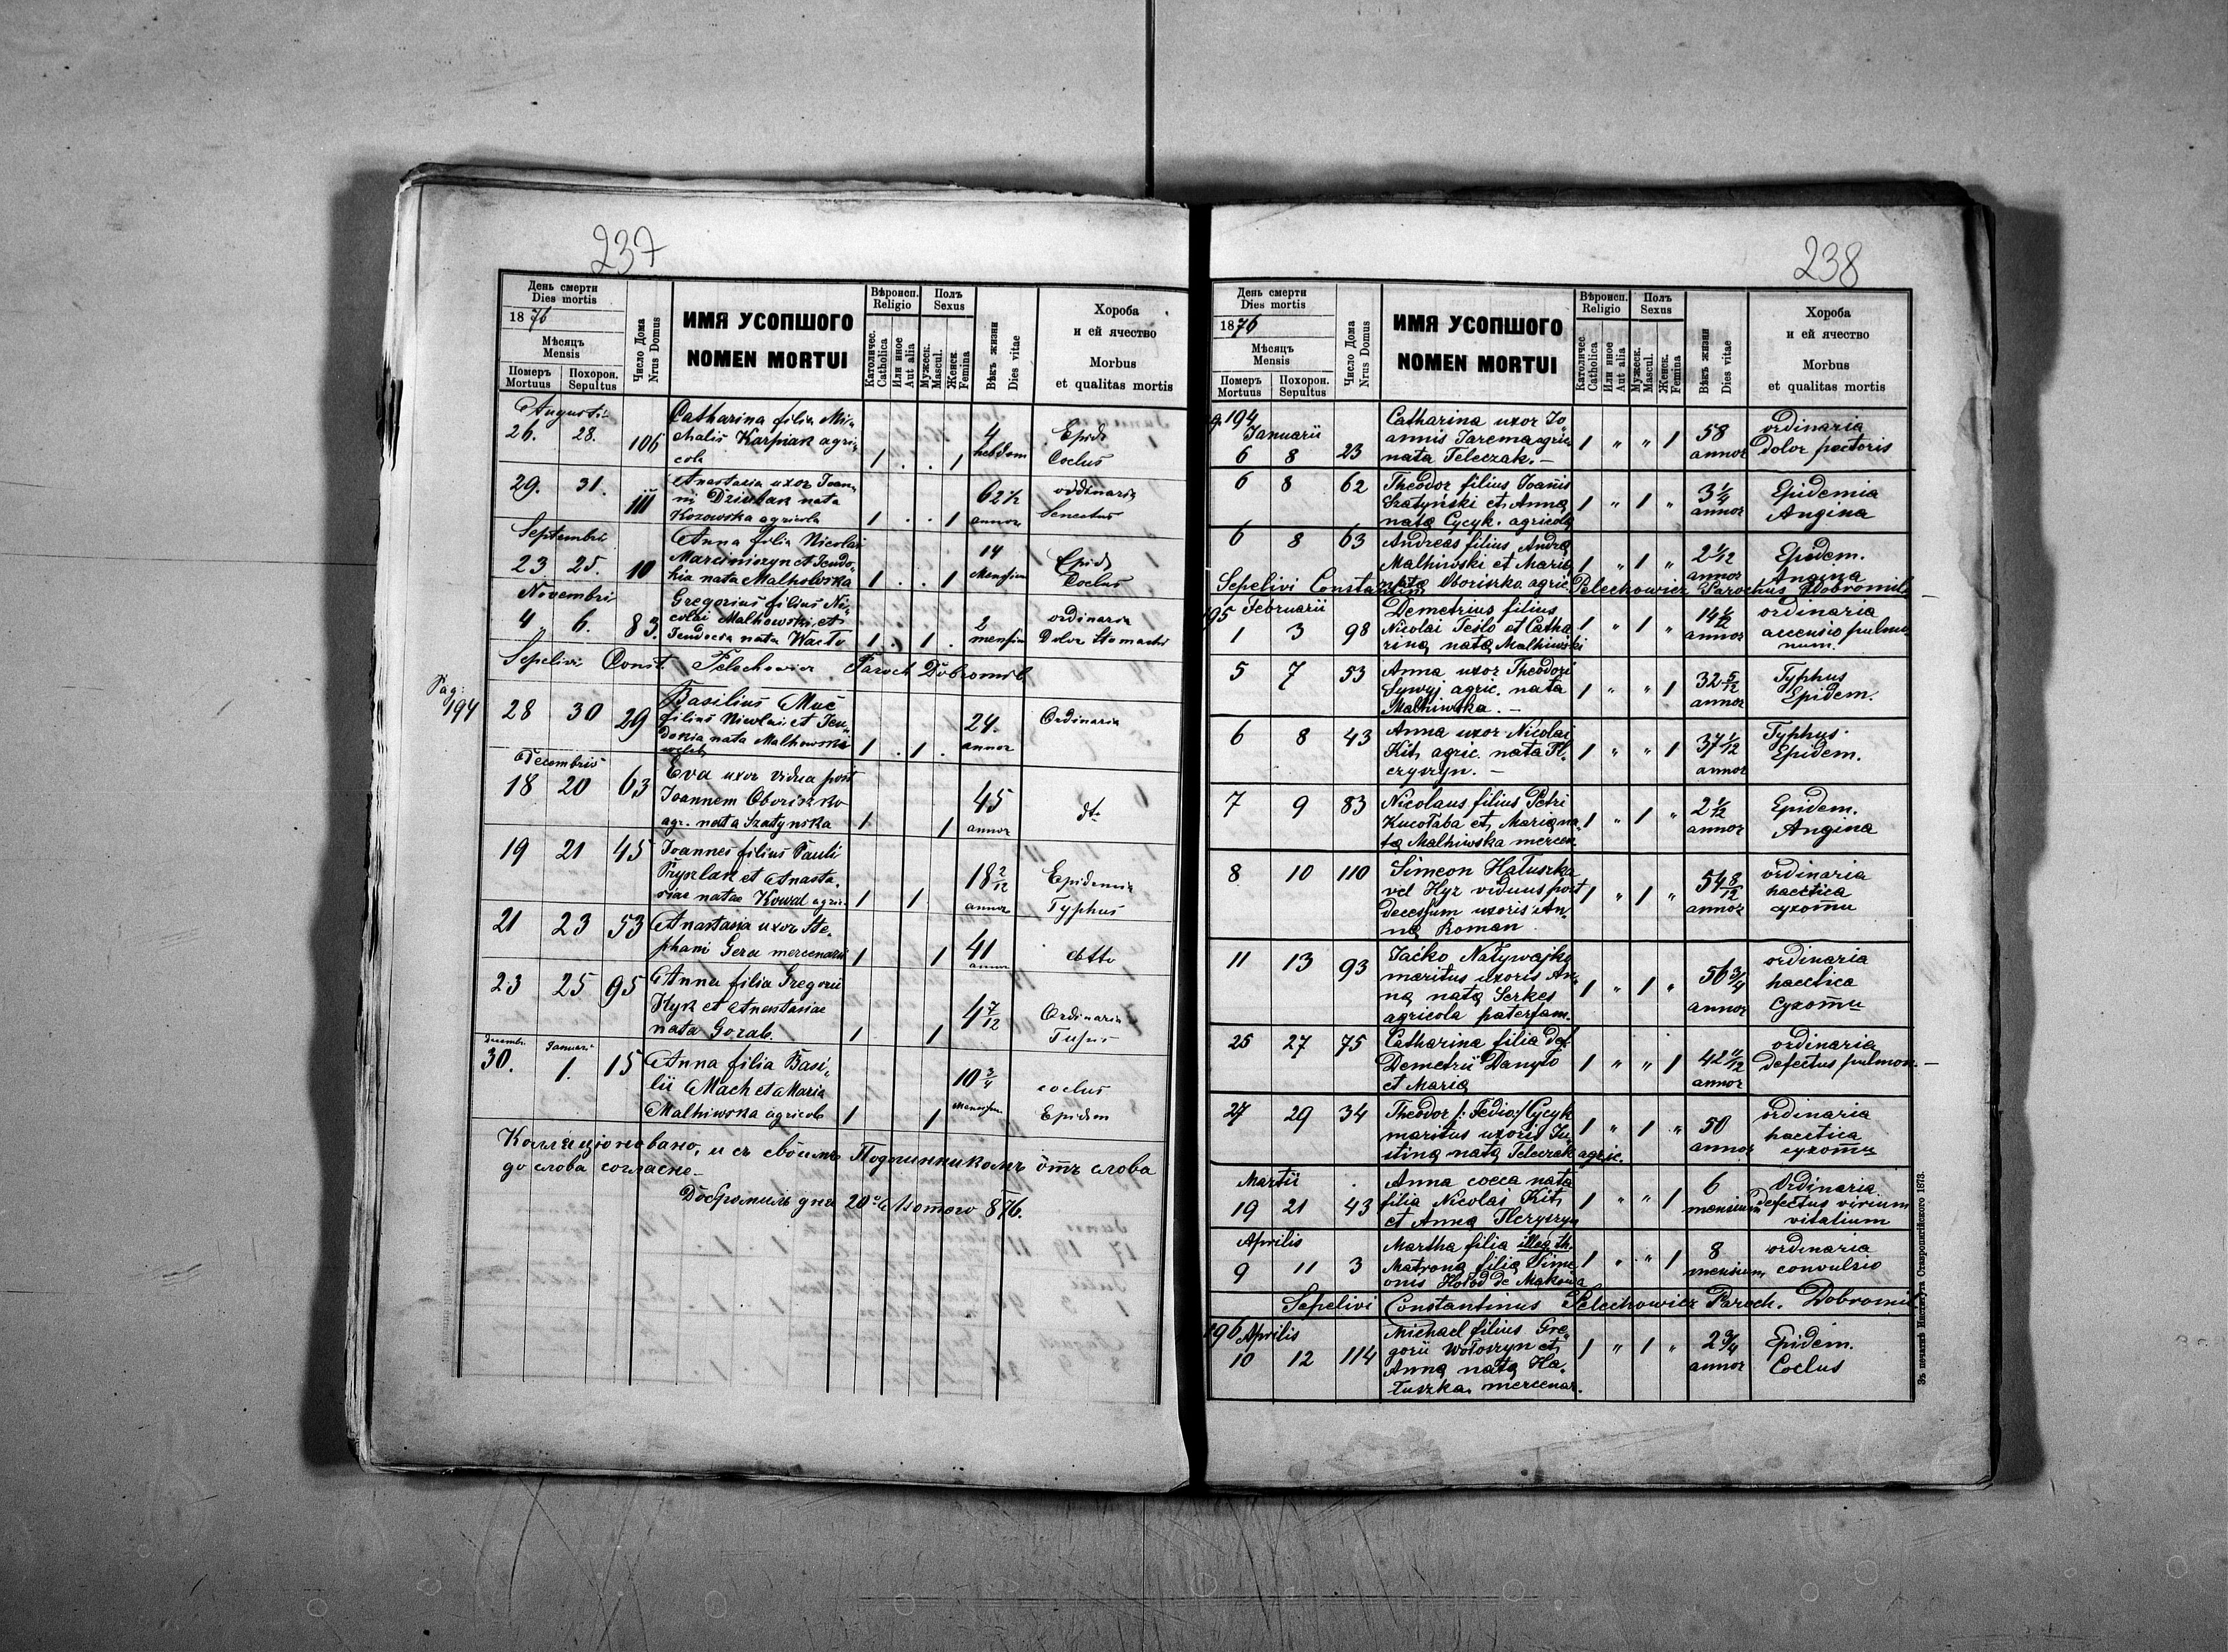 237
День смерти
Dies mortis
1876
Мѣсяцъ
Mensis
Померъ
Mortuus
Похорон.
Sepultus
Число Дома
Nrus Domus
ИМЯ УСОПШОГО
NOMEN MORTUI
Вѣроисп.
Religio
Католичес.
Catholica
Или иное
Aut alia
Полъ
Sexus
Мужеск.
Mascul.
Женск.
Femina
Вѣкъ жизни
Dies vitae
Хороба
и ей ячество
Morbus
et qualitas mortis
Augusti
26. 28. 106 Catharina filia Mi-
chalis Karpiak agri-
cola 1 . . 1 4 hebdom Epid. Coclus
29. 31. 111 Anastasia uxor Joan-
nis Dziubak nata
Kozowska agricola 1 . . 1 62½ annor ordinaria Senectus
Septembris
23 25. 10 Anna filia Nicolai
Marciniszyn et Eudo-
kia nata Malhowska 1 . . 1 14 Mensium Epid. Coclus
Novembris
4 6. 83. Gregorius filius Ni-
colai Malhowski et
Eudocia nata 1 . 1 . 2 mensium ordinaria Dolor Stomachi
Sepelivi Const. Pelechowicz Paroch Dobromil
Pag: 194
28 30 29 Basilius Muc
filius Nicolai et Eu-
dokia nata Malhowska
1 . 1 . 24. annor Ordinaria
Decembris
18 20 63 Eva uxor vidua post
Joannem Oboriszko
agr. nata Szatynska 1 1 45 annor dto
19 21 45 Joannes filius Pauli
et Anasta-
siae natae Kowal agric. 1 1 18 2/12 annor Epidemia Typhus
21 23 53 Anastasia uxor Ste-
phani Gera mercenarii 1 1 41 annor dtto
23 25 95 Anna filia Gregorii
Hyk et Anastasiae
nata Gozab. 1 1 4 7/12 Ordinaria Tussis
Decembr. Januari
30. 1. 15 Anna filia Basi-
lii Mach et Maria
Malhiwska agricola 1 1 10¾ Mensium coclus Epidem
Колляціоновано, и съ своимъ Подлинникомъ ôтъ слова
до слова согласно
Добромиль дня 20о Лютого 876.
238
День смерти
Dies mortis
1876
Мѣсяцъ
Mensis
Померъ
Mortuus
Похорон.
Sepultus
Число Дома
Nrus Domus
ИМЯ УСОПШОГО
NOMEN MORTUI
Вѣроисп.
Religio
Католичес.
Catholica
Или иное
Aut alia
Полъ
Sexus
Мужеск.
Mascul.
Женск.
Femina
Вѣкъ жизни
Dies vitae
Хороба
и ей ячество
Morbus
et qualitas mortis
p. 194
Januarii
6 8 23 Catharina uxor Jo-
annis Jarema agric.
nata Teleczak. – 1 " " 1 58 annor ordinaria Dolor pectoris
6 8 62 Theodor filius Joanis
Szatyński et Anną
natą Cycyk. agricolą 1 " 1 " 3¼ annor Epidemia Angina
6 8 63 Andreas filius Andrą
Malhiwski et Marią
natą Oboriszko agric. 1 " 1 " 2 1/12 annor Epidem. Angina
Sepelivi Constantinus Pelechowicz Parochus Dobromil.
195 Februarii
1 3 98 Demetrius filius
Nicolai Tesło et Catha-
riną natą Malhiwski 1 " 1 " 14½ annor ordinaria accensio pulmo-
num.
5 7 53 Anna uxor Theodori
Sywyj agric. nata
Malhiwska. – 1 " " 1 32 5/12 annor Typhus Epidem.
6 8 43 Anna uxor Nicolai
Kit, agric. nata Il-
czyszyn. – 1 " " 1 37 1/12 annor Typhus Epidem.
7 9 83 Nicolaus filius Petri
Kucołaba et Marią na-
tą Malhiwska mercen. 1 " 1 " 2 1/12 annor Epidem. Angina
8 10 110 Simeon Hałuszka
vel Hyz viduus post
decessum uxoris An-
ną Roman 1 " 1 " 54 8/12 annor ordinaria haectica сухоты
11 13 93 Jaćko Natywajko
maritus uxoris An-
ną natą Serkes
agricola paterfam. 1 " 1 " 56¾ annor ordinaria haectica сухоты
25 27 75 Catharina filia def.
Demetrii Danyło
et Marią 1 " " 1 42 11/12 annor ordinaria defectus pulmon. –
27 29 34 Theodor /: Fedio:/ Cycyk
maritus uxoris Ju-
stiną natą Teleczak agric. 1 " 1 " 50 annor ordinaria haectica сухоты
Martii
19 21 43 Anna coeca nata
filia Nicolai Kit,
et Anną Ilczyszyn 1 " " 1 6 mensium Ordinaria defectus virium
vitalium
Aprilis
9 11 3 Martha filia illeg. th.
Matroną filią Sime-
onis Hołod de Makowa 1 " " 1 8 mensium ordinaria convulsio
Sepelivi Constantinus Pelechowicz Paroch. Dobromil
196 Aprilis
10 12 114 Michael filius Gre-
gorii Wołoszyn et
Anną natą Ha-
łuszka, mercenar. 1 " 1 " 2¾ annor Epidem. Coclus
Зъ печатнѣ Института Ставропигійского 1873.